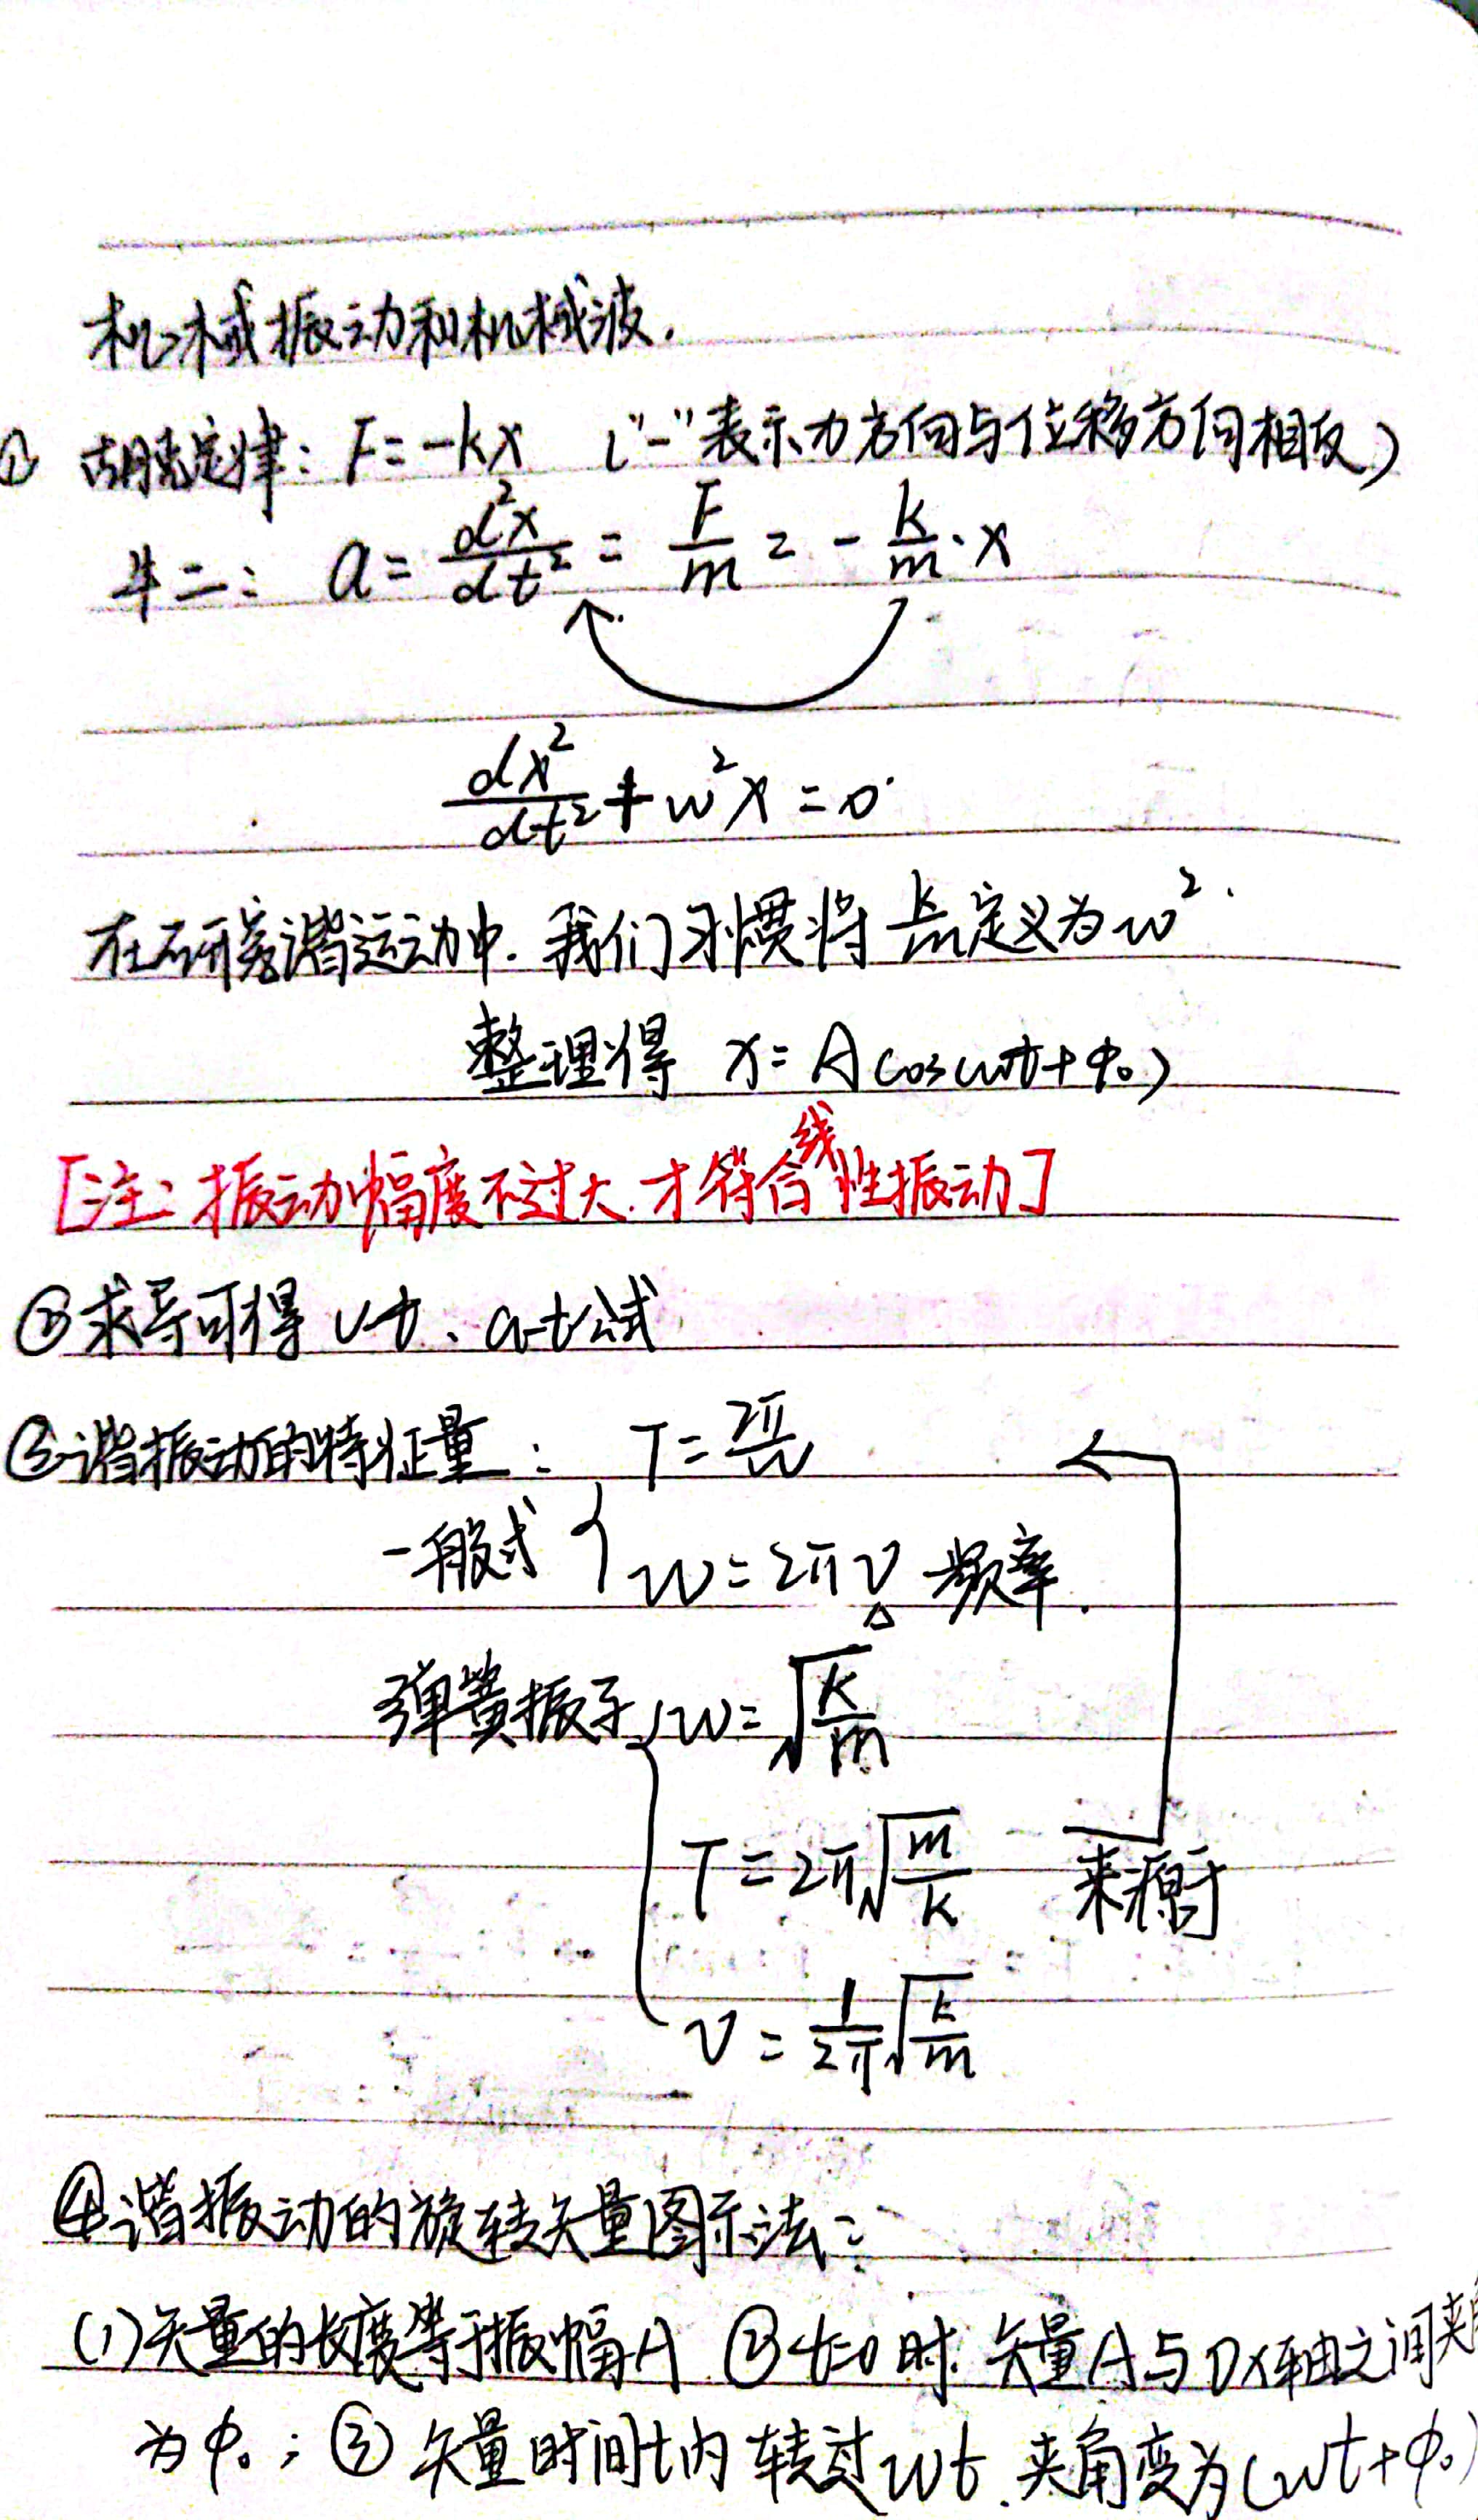 机械振动和机械波.
① 胡克定律: F=-kx ("-"表示力方向与位移方向相反)
牛二: a= d²x/dt² = F/m = - k/m · x
dx²/dt² + w²x =0
在研究谐运动中. 我们习惯将 k/m 定义为 w².
整理得 x= A cos(wt+φ₀)
[注: 振动幅度不过大.才符合线性振动]
②求导可得 v-t、a-t公式
③谐振动的特征量: T= 2π/w
一般式 { w=2πν 频率.
弹簧振子 { w= √(k/m)
T=2π√(m/k) 来源于
ν = 1/2π √(k/m)
④谐振动的旋转矢量图示法:
(1)矢量的长度等于振幅A ②t=0时. 矢量A与Ox轴之间夹角
为φ₀; ③ 矢量时间t内 转过wt. 夹角变为(wt+φ₀)